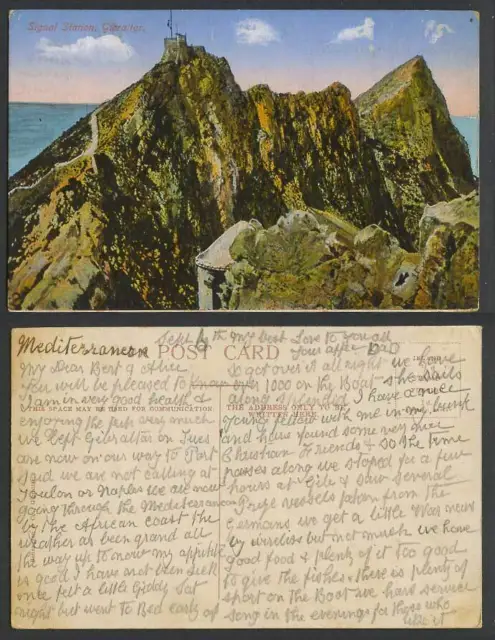 Signal Station, Gibraltar.
Mediterranean
Sept 6th My best Love to you all
Your affec Dad
POST CARD
THIS SPACE MAY BE USED FOR COMMUNICATION.
THE ADDRESS ONLY TO BE WRITTEN HERE.
My Dear Bert & Alice
You will be pleased to know
I am in very good health &
enjoying the trip very much
we left Gibraltar on Tues
are now on our way to Port
Said we are not calling at
Toulon or Naples we are now
going through the Mediterranean
by the African coast the
weather as been grand all
the way up to now my appitite
is good I have not been sick
once felt a little Giddy Sat
night but went to Bed early &
so got over it all right we have
over 1000 on the Boat she sails
along splendid I have a nice
Young fellow with me in my bunk
and have found some very nice
Christian Friends & so the time
passes along we stoped for a few
hours at Gib & saw several
Prize vessels taken from the
Germans we get a little War news
by wireless but not much we have
good food & plenty of it too good
to give the fishes there is plenty of
sport on the Boat we have service
song in the evenings for those who
like it